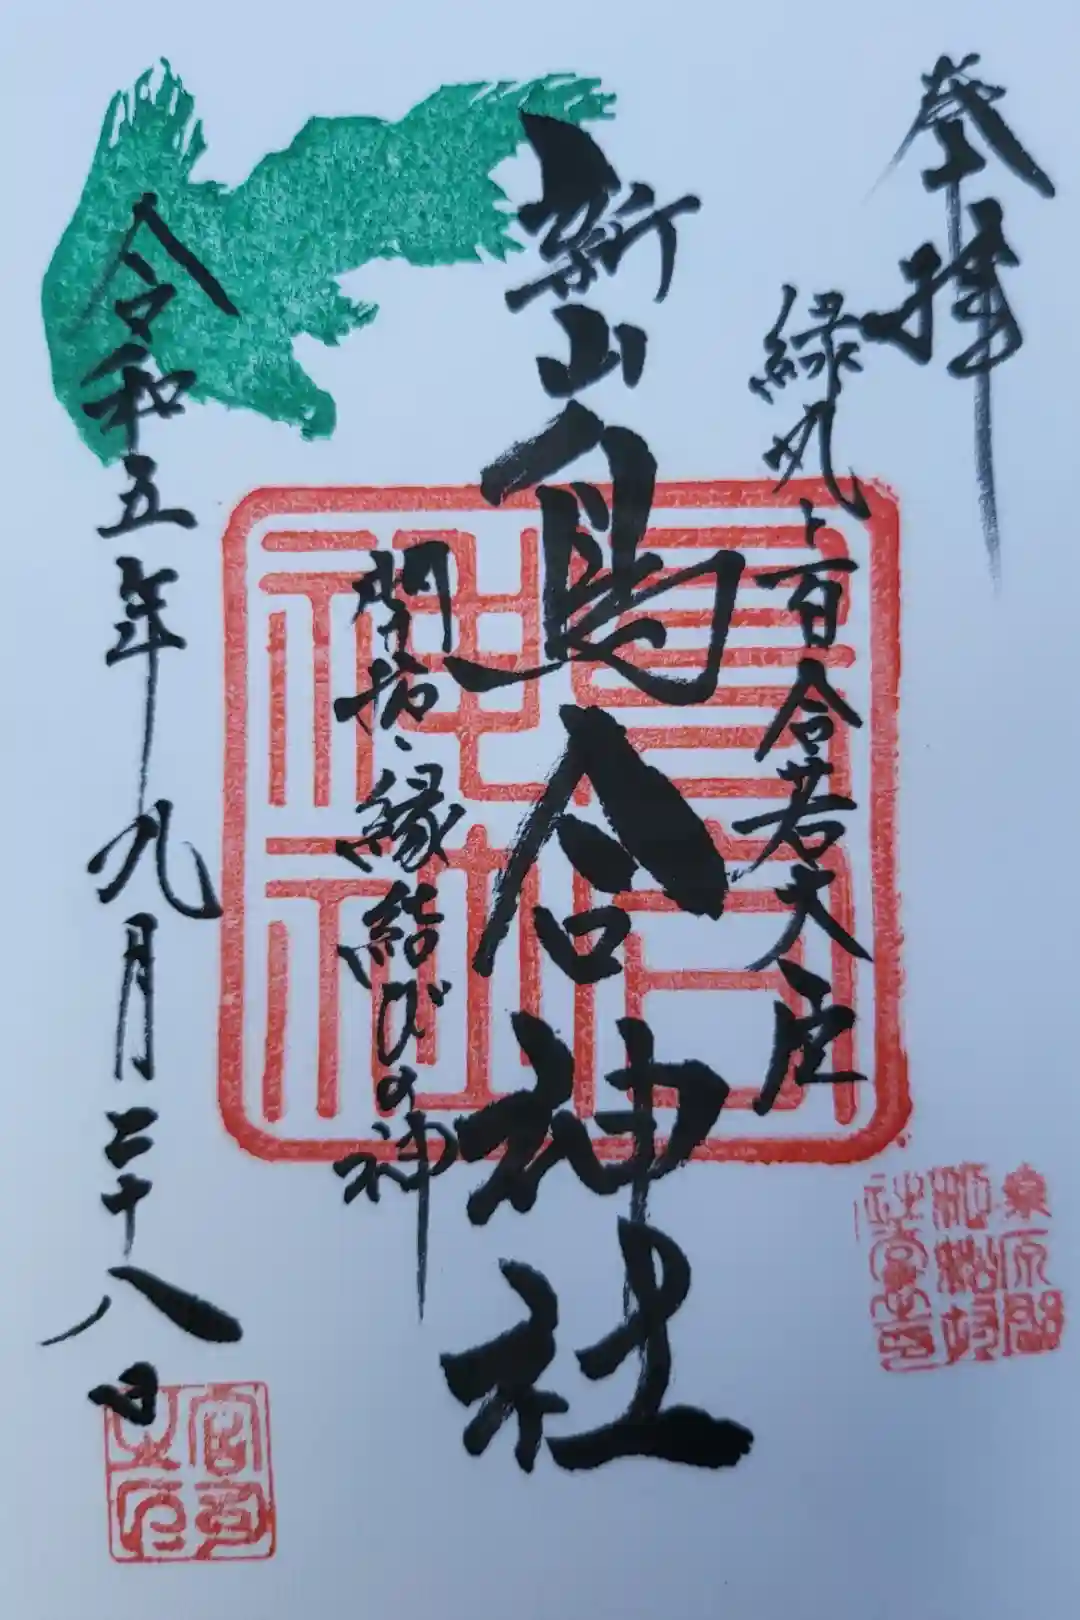 奉拝
緑丸と百合若大臣
新山鳥合神社
開拓、縁結びの神
令和五年九月二十八日
宮司之印